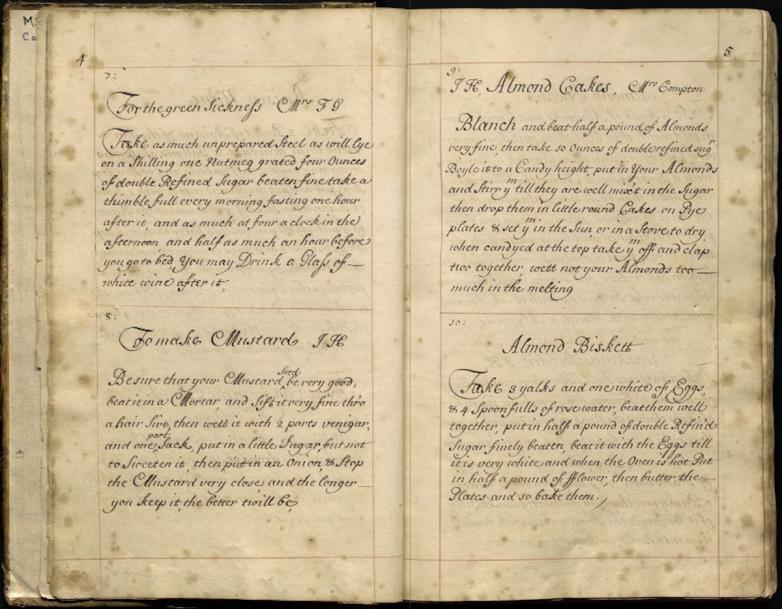 M:
Co
4
7:
For the green Sickness Mrs F G
Take as much unprepared Steel as will lye
on a Shilling one Nutmeg grated four Ounces
of double Refined Sugar beaten fine take a
thimble full every morning fasting one hour
after it, and as much at four a clock in the
afternoon and half as much an hour before
you go to bed You may Drink a Glass of
white wine after it,
8:
To make Mustard J H
Be sure that your Mustard seed be very good,
beat it in a Mortar, and Sift it very fine thro
a hair Sive, then wett it with 2 parts venigar,
and one part Sack, put in a little Sugar, but not
to Sweeten it, then put in an Onion, & Stop
the Mustard very close and the longer
you keep it, the better twill be,
5
9:
J H, Almond Cakes, Mrs Compton
Blanch and beat half a pound of Almonds
very fine, then take 10 Ounces of double refined sugr
Boyle it to a Candy height, put in Your Almonds
and Stirr ym till they are well mixt in the Sugar
then drop them in little round Cakes on Pye
plates & set ym in the Sun, or in a Stove to dry
when candyed at the top take ym off and clap
two together, wett not your Almonds too
much in the melting
10:
Almond Biskett
Take 8 yalks and one white of Eggs,
& 4 Spoonfulls of rose water, beat them well
together, put in half a pound of double Refin'd
Sugar finely beaten, beat it with the Eggs till
it is very white and when the Oven is hot Put
in half a pound of fflower, then butter the
Plates and so bake them.